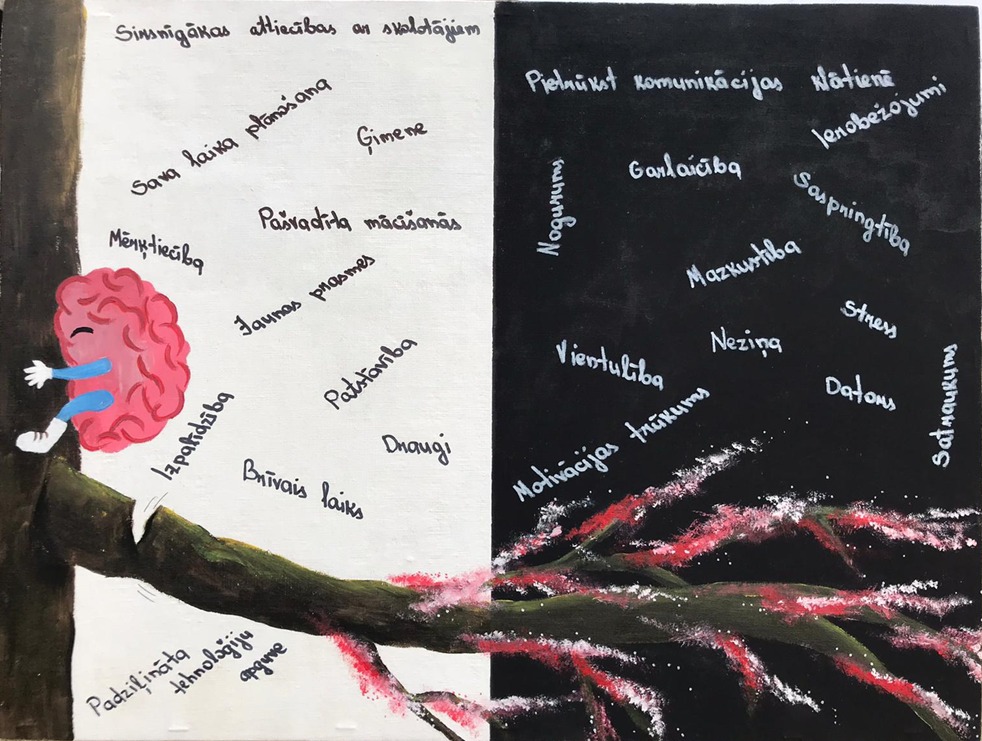 Sirsnīgākas attiecības ar skolotājiem
Sava laika plānošana
Ģimene
Pašvadīta mācīšanās
Mērķtiecība
Jaunas prasmes
Patstāvība
Izpalīdzība
Draugi
Brīvais laiks
Padziļināta
tehnoloģiju
apguve
Pietrūkst komunikācijas klātienē
Ierobežojumi
Nogurums
Garlaicība
Saspringtība
Mazkustība
Stress
Neziņa
Vientulība
Dators
Satraukums
Motivācijas trūkums